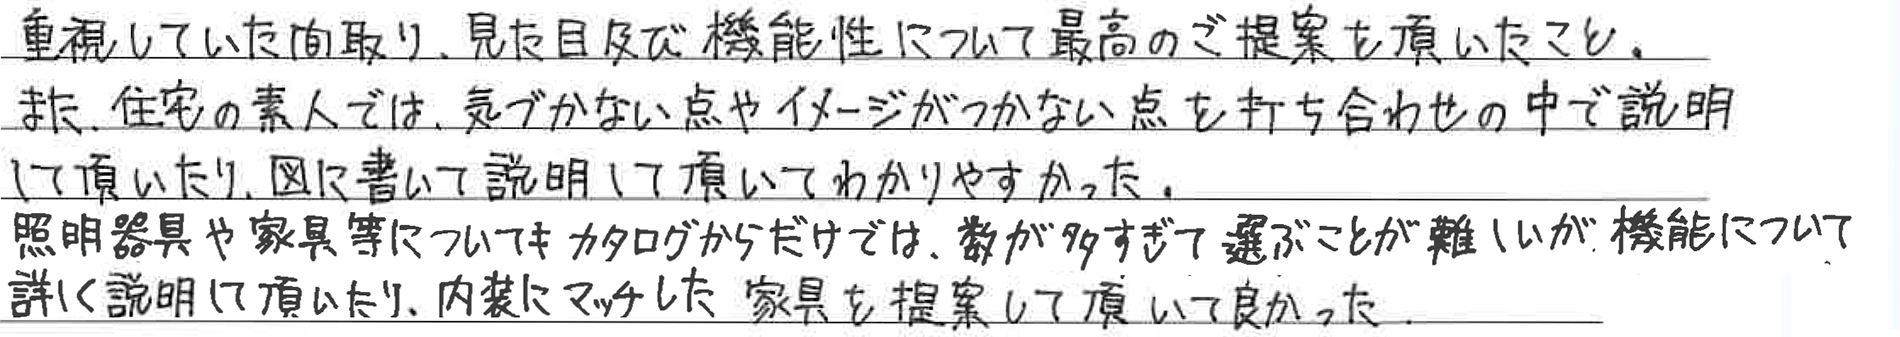 重視していた間取り、見た目及び機能性について最高のご提案を頂いたこと。
また、住宅の素人では、気づかない点やイメージがつかない点を打ち合わせの中で説明
して頂いたり、図に書いて説明して頂いてわかりやすかった。
照明器具や家具等についてもカタログからだけでは、数が多すぎて選ぶことが難しいが、機能について
詳しく説明して頂いたり、内装にマッチした家具を提案して頂いて良かった。